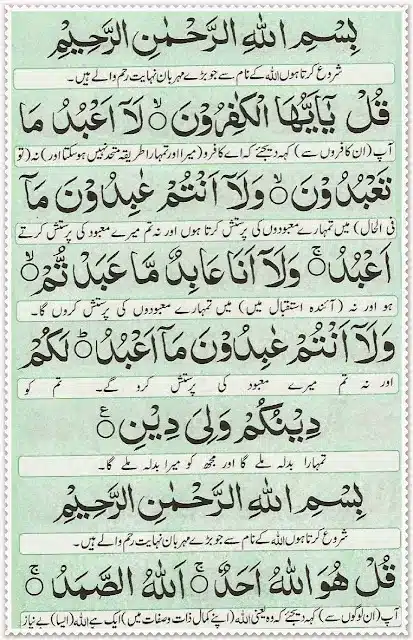 بِسْمِ اللهِ الرَّحْمٰنِ الرَّحِيْمِ
شروع کرتا ہوں اللہ کے نام سے جو بڑے مہربان نہایت رحم والے ہیں۔
قُلْ يٰۤاَيُّهَا الْكٰفِرُوْنَ ۙ لَاۤ اَعْبُدُ مَا
آپ (ان کافروں سے) کہہ دیجئے کہ اے کافرو (میرا اور تمہارا طریقہ متحد نہیں ہو سکتا اور) نہ (تو
تَعْبُدُوْنَ ۙ وَلَاۤ اَنْتُمْ عٰبِدُوْنَ مَاۤ
فی الحال) میں تمہارے معبودوں کی پرستش کرتا ہوں اور نہ تم میرے معبود کی پرستش کرتے
اَعْبُدُ ۚ وَلَاۤ اَنَا عَابِدٌ مَّا عَبَدْتُّمْ ۙ
ہو اور نہ (آئندہ استقبال میں) میں تمہارے معبودوں کی پرستش کروں گا۔
وَلَاۤ اَنْتُمْ عٰبِدُوْنَ مَاۤ اَعْبُدُ ؕ لَكُمْ
اور نہ تم میرے معبود کی پرستش کرو گے۔ تم کو
دِيْنُكُمْ وَلِيَ دِيْنِ ۧ
تمہارا بدلہ ملے گا اور مجھ کو میرا بدلہ ملے گا۔
بِسْمِ اللهِ الرَّحْمٰنِ الرَّحِيْمِ
شروع کرتا ہوں اللہ کے نام سے جو بڑے مہربان نہایت رحم والے ہیں۔
قُلْ هُوَ اللهُ اَحَدٌ ۚ اَللهُ الصَّمَدُ ۚ
آپ (ان لوگوں سے) کہہ دیجئے کہ وہ یعنی اللہ (اپنے کمال ذات و صفات میں) ایک ہے اللہ (ایسا) بے نیاز